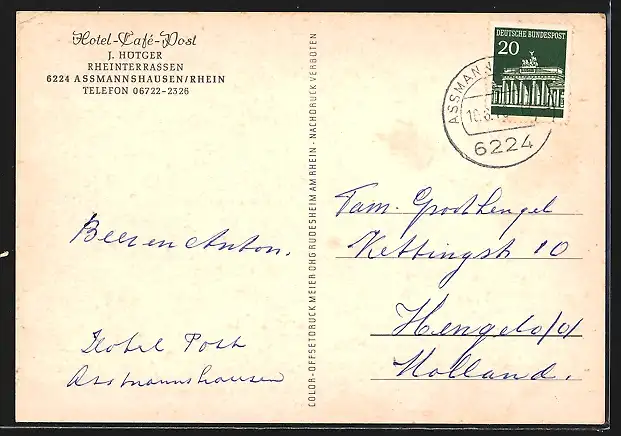 Hotel-Café-Post
J. HÖTGER
RHEINTERRASSEN
6224 ASSMANNSHAUSEN/RHEIN
TELEFON 06722-2326
Anton.
Hotel Post
Assmannshausen
COLOR-OFFSETDRUCK MEIER OHG RÜDESHEIM AM RHEIN - NACHDRUCK VERBOTEN
DEUTSCHE BUNDESPOST
20
6224
Fam. Groothengel
Kettingstr 10
Hengelo/o/
Holland.